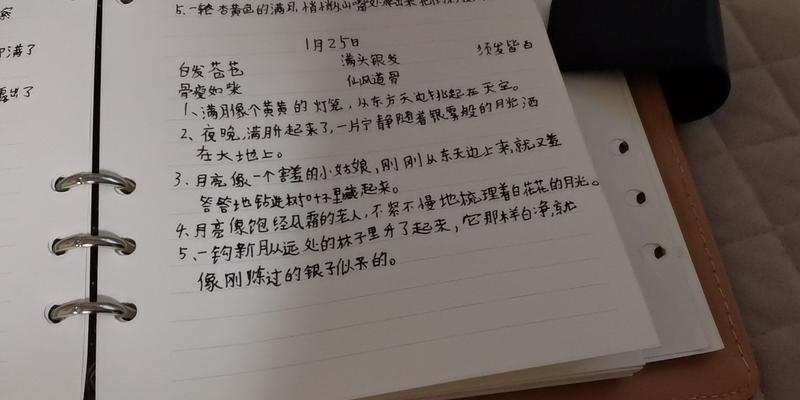 察
满了
露出了
5.一轮杏黄色的满月,悄悄从山嘴处
1月25日
白发苍苍 满头银发 须发皆白
骨瘦如柴 仙风道骨
1、满月像个黄黄的灯笼,从东方天边挑起在天空。
2、夜晚,满月升起来了,一片宁静随着银雾般的月光洒
在大地上。
3.月亮像一个害羞的小姑娘,刚刚从东天边上来,就又羞
答答地钻进树叶里藏起来。
4.月亮像饱经风霜的老人,不紧不慢地梳理着白花花的月光。
5、一钩新月从远处的林子里升了起来,它那样白净,就
像刚炼过的银子似呆的。